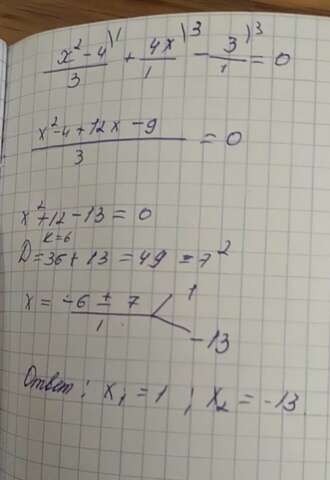 x²-4)¹/3 + 4x)³/1 - 3)³/1 = 0
x²-4+12x-9/3 = 0
x²+12-13=0
k=6
D=36+13=49=7²
x = -6±7/1 1
-13
Ответ: x₁=1; x₂=-13.